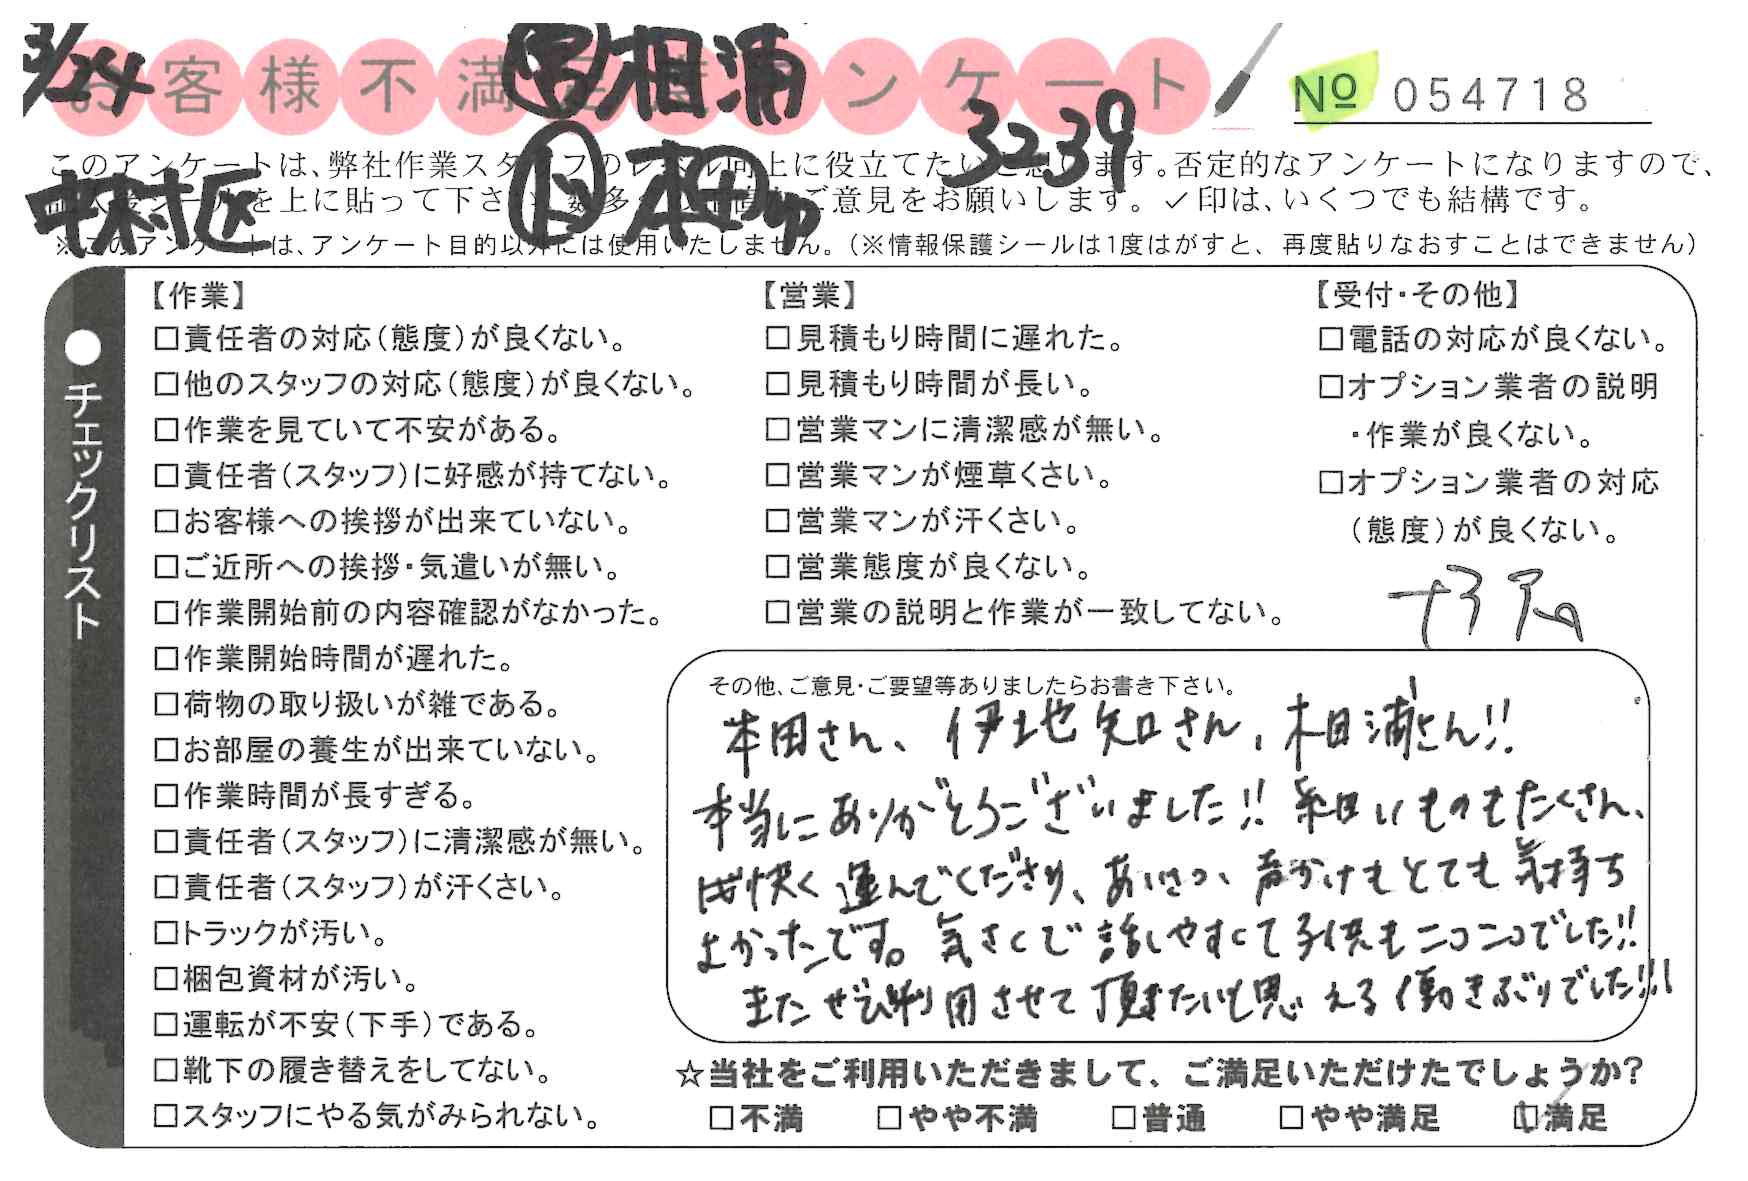 3/24
お客様不満足度アンケート
相浦
№ 054718
3239
このアンケートは、弊社作業スタッフのレベル向上に役立てたいと思います。否定的なアンケートになりますので、
を上に貼って下さい。数多くの ご意見をお願いします。✓印は、いくつでも結構です。
中村区
ト 本田
※このアンケートは、アンケート目的以外には使用いたしません。（※情報保護シールは1度はがすと、再度貼りなおすことはできません）
●チェックリスト
【作業】
□責任者の対応（態度）が良くない。
□他のスタッフの対応（態度）が良くない。
□作業を見ていて不安がある。
□責任者（スタッフ）に好感が持てない。
□お客様への挨拶が出来ていない。
□ご近所への挨拶・気遣いが無い。
□作業開始前の内容確認がなかった。
□作業開始時間が遅れた。
□荷物の取り扱いが雑である。
□お部屋の養生が出来ていない。
□作業時間が長すぎる。
□責任者（スタッフ）に清潔感が無い。
□責任者（スタッフ）が汗くさい。
□トラックが汚い。
□梱包資材が汚い。
□運転が不安（下手）である。
□靴下の履き替えをしてない。
□スタッフにやる気がみられない。
【営業】
□見積もり時間に遅れた。
□見積もり時間が長い。
□営業マンに清潔感が無い。
□営業マンが煙草くさい。
□営業マンが汗くさい。
□営業態度が良くない。
□営業の説明と作業が一致してない。
【受付・その他】
□電話の対応が良くない。
□オプション業者の説明
・作業が良くない。
□オプション業者の対応
（態度）が良くない。
その他、ご意見・ご要望等ありましたらお書き下さい。
本田さん、伊地知さん、相浦さん!!
本当にありがとうございました!! 細いものもたくさん、
快く運んでくださり、あいさつ、声かけもとても気持ち
よかったです。気さくで話しやすくて子供もニコニコでした!!
またぜひ利用させて頂きたいと思える働きぶりでした!!!
☆当社をご利用いただきまして、ご満足いただけたでしょうか?
□不満 □やや不満 □普通 □やや満足 ☑満足